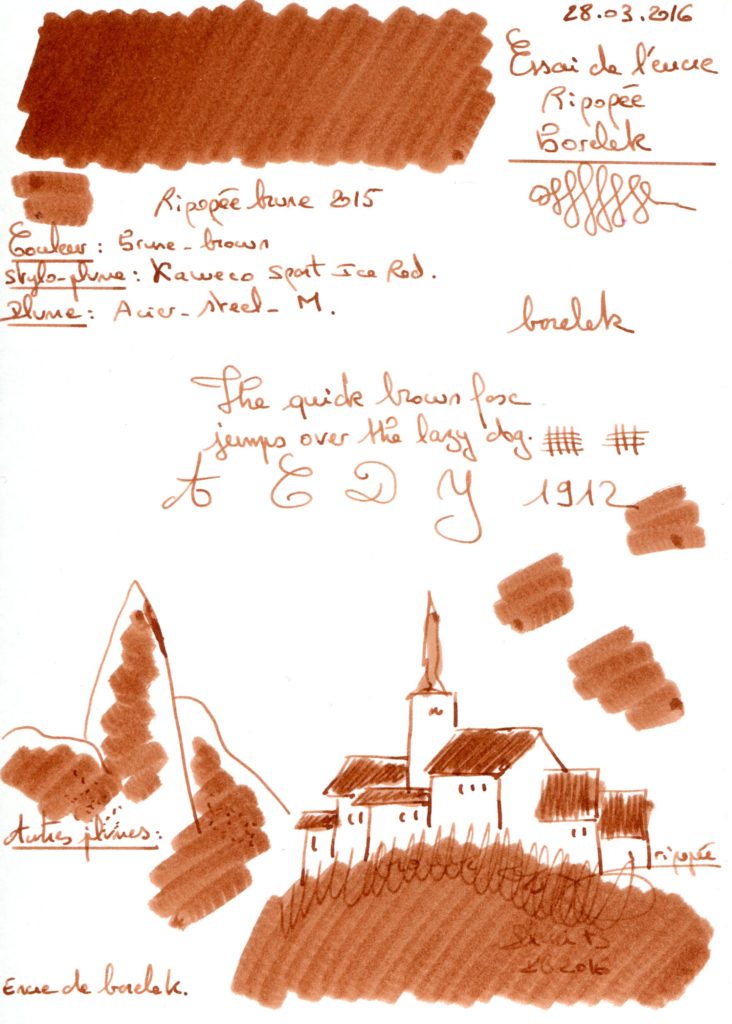 28.03.2016
Essai de l'encre
Ripopée
Borelek
Ripopée brune 2015
Couleur : Brune - brown
Stylo-plume : Kaweco Sport Ice Red.
Plume : Acier - steel - M.
borelek
The quick brown fox
jumps over the lazy dog.
A E D Y 1912
Autres plumes :
ripopée
2016
Encre de borelek.